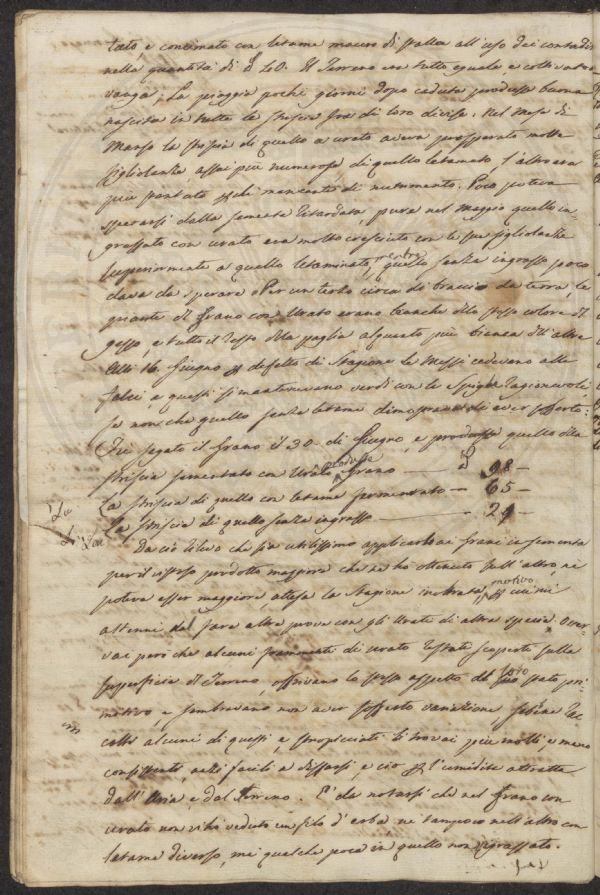 tato, e concimato con letame macero di stalla all'uso dei contadini
nella quantità di ₶ 40. Il Terreno era tutto eguale, e coltivato a
vanga, La pioggia pochi giorni dopo caduta produsse buona
nascita in tutte le striscie fra di loro divise. Nel Mese di
Marzo la striscia di quello a urato aveva prosperato molto
figliolanza assai più numerosa, di quello letamato, l'altro era
più stentato mancante di nutrimento. Poco poteva
sperarsi dalla sementa ritardata, pure nel Maggio quello in-
grassato con urato era molto cresciuto con le sue figliolanze
superiormente a quello letaminato, mentre quello senza ingrasso poco
dava da sperare. Per un terzo circa di braccio da terra, le
piante di Grano con Urato erano bianche dello stesso colore di
gesso, e tutto il resto della paglia alquanto più bianca dell'altre
Alli 16. Giugno difetto di Stagione le Messi cadevano alle
falci, e questi si mantenevano verdi con le Spighe ragionevoli,
se non che quello senza letame dimostrava di aver sofferto.
Fu segato il Grano il 30. di Giugno, e produsse quello della
striscia sementato con Urato produsse Grano — ₶ 98 —
La striscia di quello con letame fermentato — " 65 —
La striscia di quello senza ingrasso — " 29 —
La
Da ciò rilevo che sia utilissimo applicarlo ai grani in sementa
per il vistoso prodotto maggiore che ne ho ottenuto sull'altro, ne
poteva esser maggiore, attesa la Stagione inoltrata, motivo cui mi
astenni dal fare altre prove con gli Urati di altra specie. Osser-
vai però che alcuni frammenti di urato restati scoperti sulla
superficie di Terreno, offrivano lo stesso aspetto del loro stato pri-
mitivo, e sembravano non aver sofferto variazione, sebbene rac-
colti alcuni di questi e stropicciati li trovai più molli, e meno
consistenti anzi facili a disfarsi, e ciò l'umidità attratta
dall'Aria, e dal Terreno. E' da notarsi che nel Grano con
urato non vi ho veduto un filo d'erba ne tampoco nell'altro con
letame diverso, ma qualche poca in quello non ingrassato.